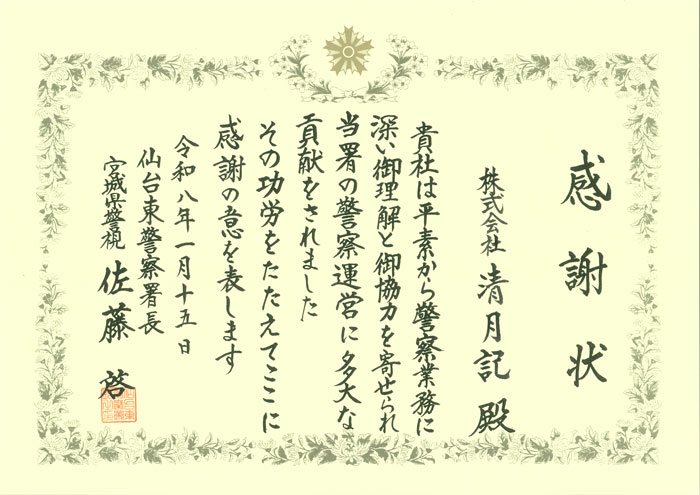 感謝状
株式会社 清月記 殿
貴社は平素から警察業務に
深い御理解と御協力を寄せられ
当署の警察運営に多大な
貢献をされました
その功労をたたえてここに
感謝の意を表します
令和八年一月十五日
仙台東警察署長
宮城県警視 佐藤 啓